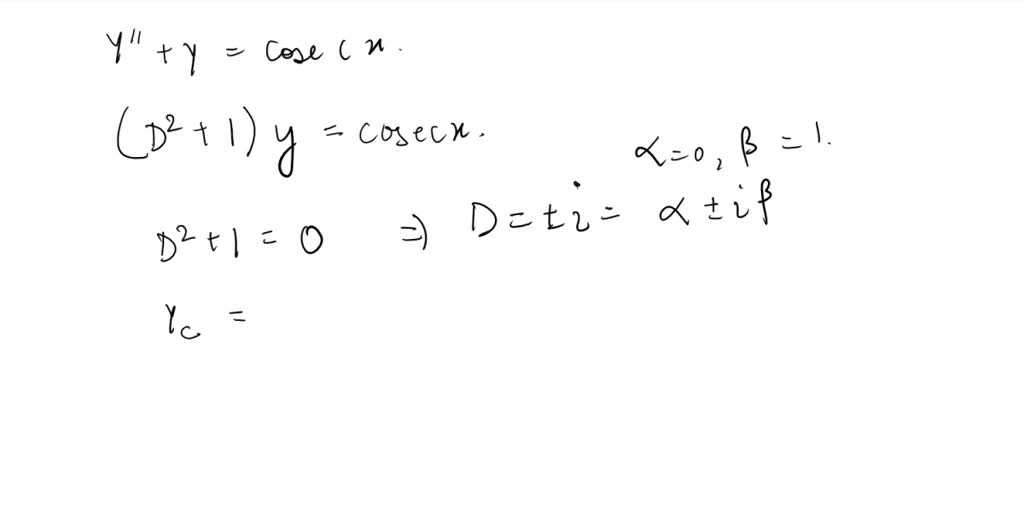 y'' + y = cosec x.
(D² + 1) y = cosecx.
α=0, β = 1.
D² + 1 = 0 ⇒ D = ± i = α ± iβ
Y_c =